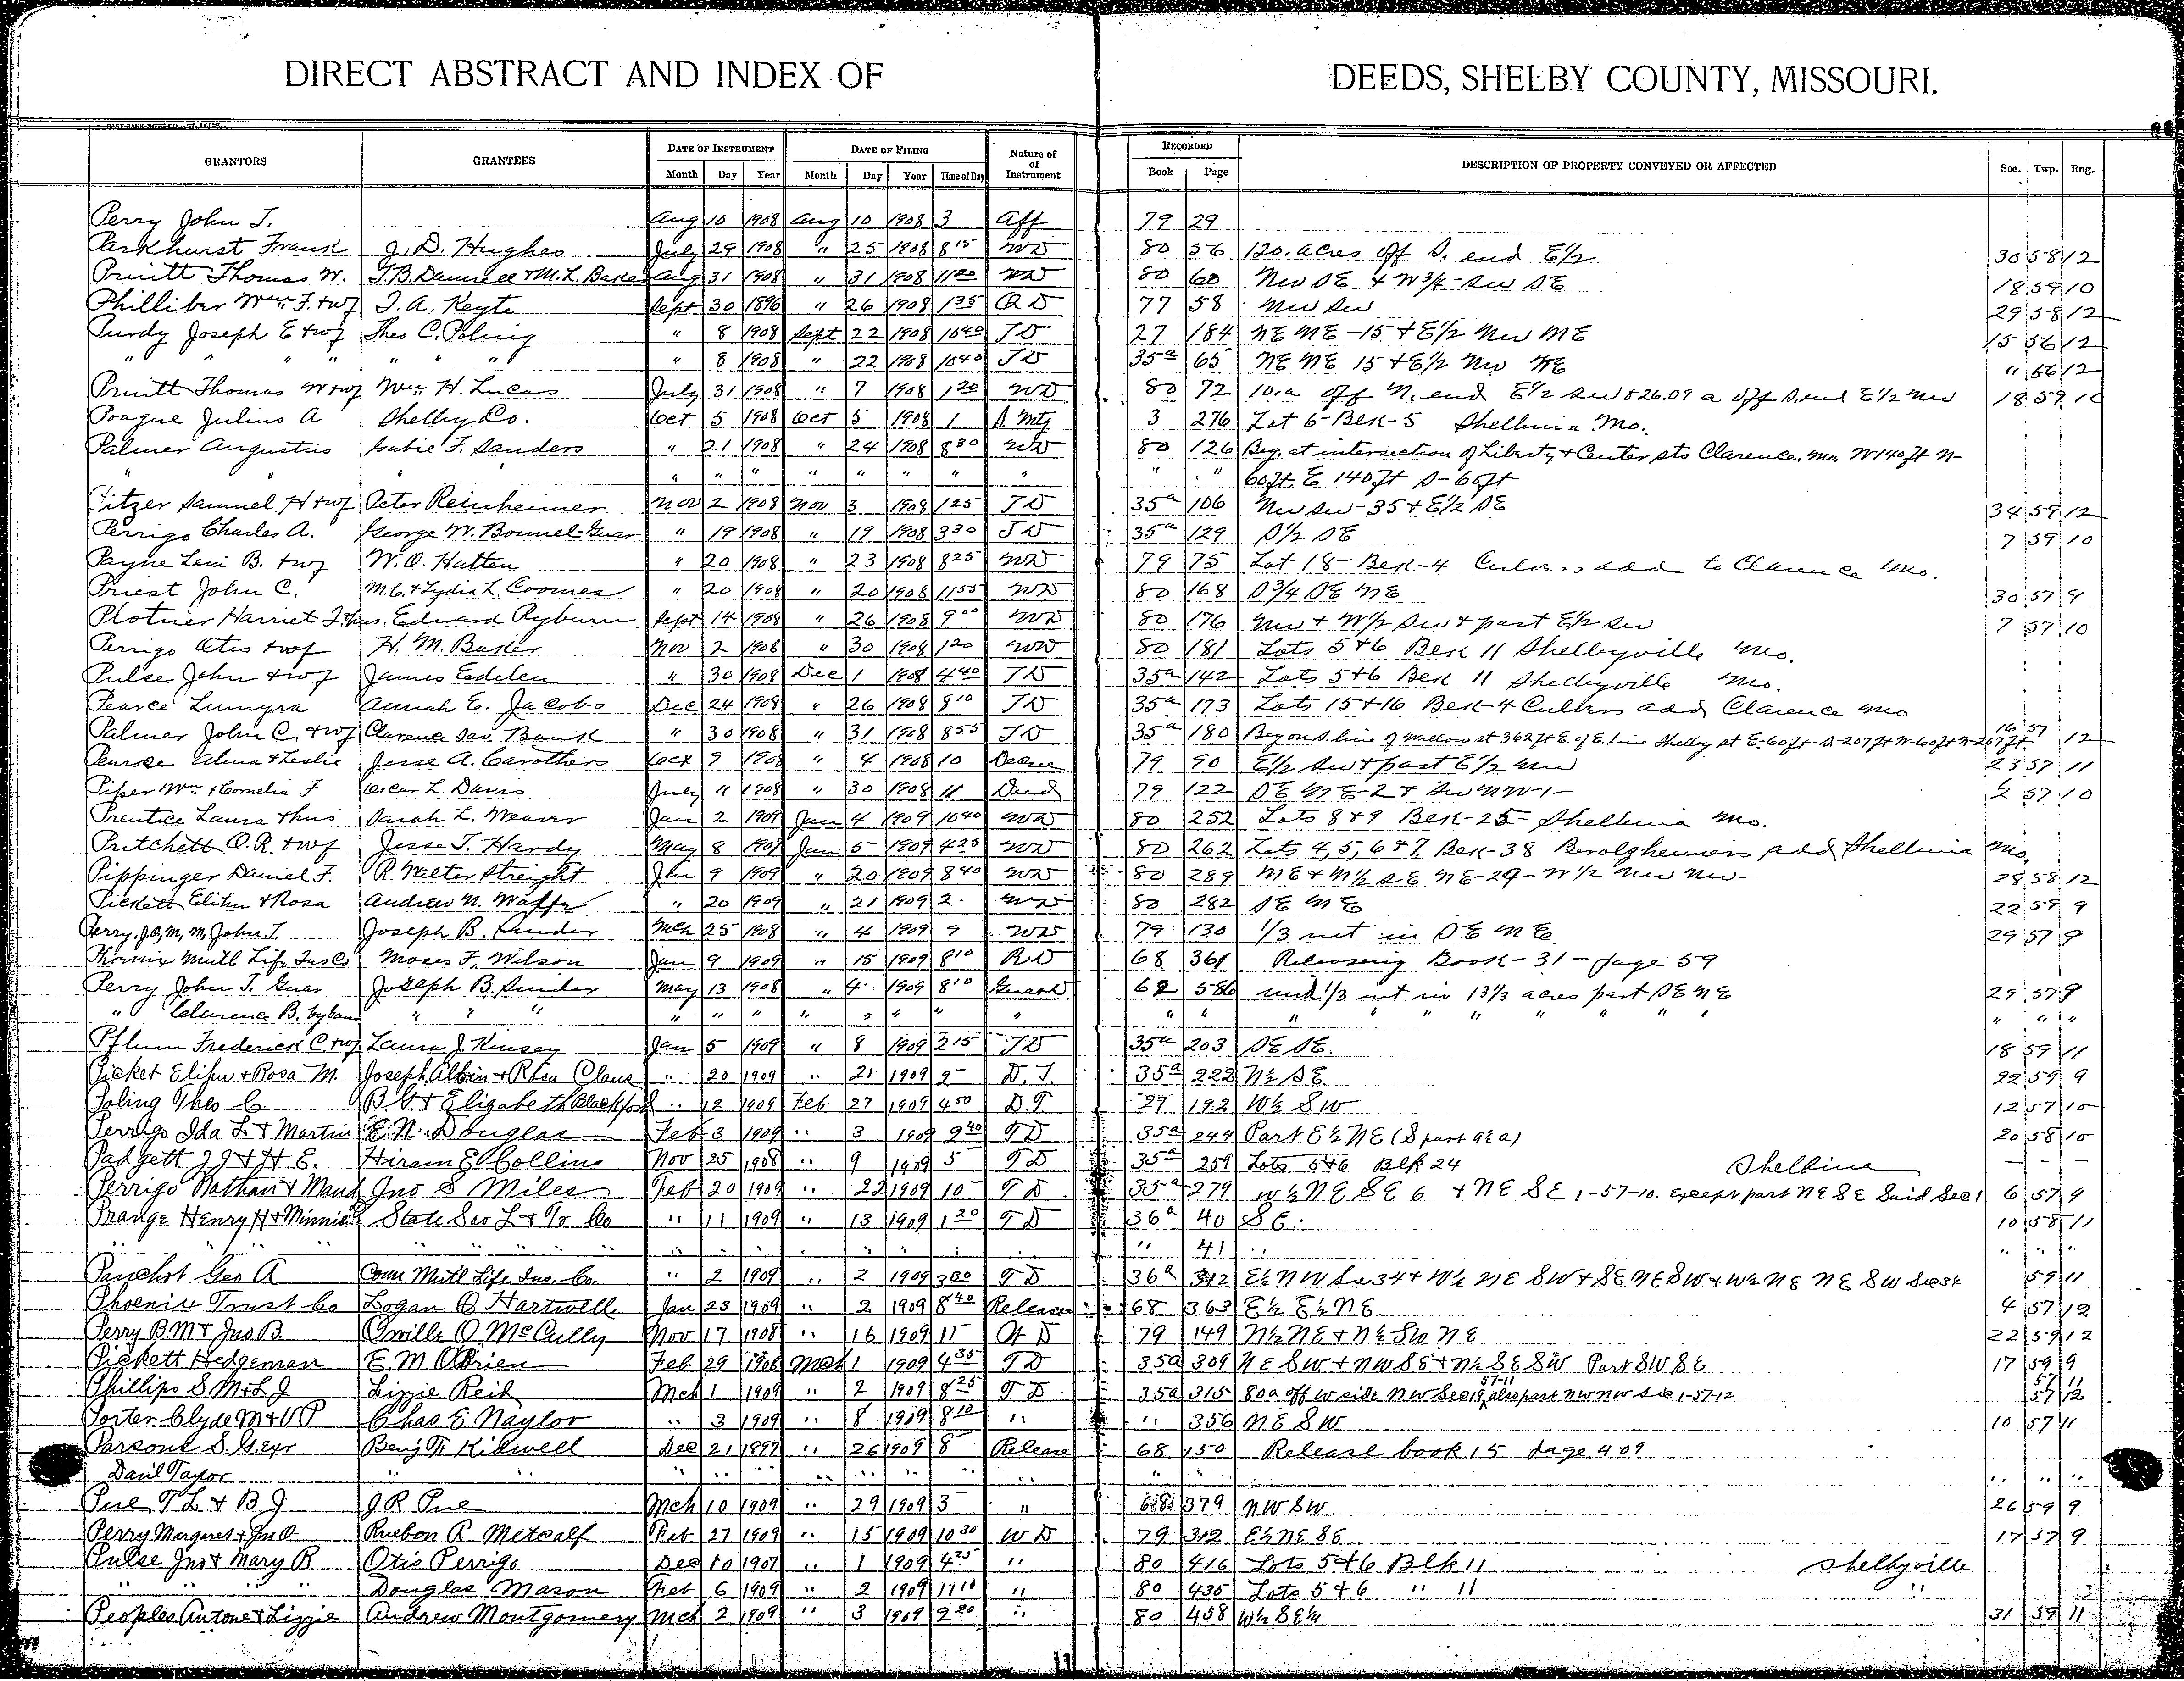 DIRECT ABSTRACT AND INDEX OF DEEDS, SHELBY COUNTY, MISSOURI.
GRANTORS GRANTEES DATE OF INSTRUMENT Month Day Year DATE OF FILING Month Day Year Time of Day Nature of of Instrument RECORDED Book Page DESCRIPTION OF PROPERTY CONVEYED OR AFFECTED Sec. Twp. Rng.
Perry John T. Aug 10 1908 Aug 10 1908 3 Aff 79 29
Parkhurst Frank J. D. Hughes July 29 1908 " 25 1908 8 15 WD 80 56 120. acres off S. end E1/2 30 58 12
Pruitt Thomas W. Aug 31 1908 " 31 1908 WD 80 60 NW SE & W 3/4 - SW SE 18 59 10
Philliber Wm. F. & wf T. A. Keyte Sept 30 1896 " 26 1908 1 35 QD 77 58 NW SW 29 58 12
Purdy Joseph E & wf Theo C. Poling " 8 1908 Sept 22 1908 10 40 TD 27 184 NE NE - 15 & E1/2 NW NE 15 56 12
" " " " " " " " 8 1908 " 22 1908 10 40 TD 35a 65 NE NE 15 & E1/2 NW NE " 56 12
Pruitt Thomas W & wf Wm. H. Lucas July 31 1908 " 7 1908 1 20 WD 80 72 10.a off N. end E1/2 SW & 26.09 a off S. end E1/2 NW 18 59 10
Pogue Julius A Shelby Co. Oct 5 1908 Oct 5 1908 1 S. Mtg 3 276 Lot 6 - Blk - 5 Shelbina Mo.
Palmer Augustus F. Sanders " 21 1908 " 24 1908 8 30 WD 80 126 Beg. at intersection of Liberty & Center sts Clarence. Mo. W 140 ft N-
" " " " " " " " " " " " 60 ft. E 140 ft S - 60 ft
Pitzer Samuel H & wf Peter Reinheimer Nov 2 1908 Nov 3 1908 1 25 TD 35a 106 NW SW - 35 & E1/2 SE 34 59 12
Perrigo Charles A. George W. Bonnel Guar " 19 1908 " 19 1908 3 30 TD 35a 129 S1/2 SE 7 59 10
Payne Levi B. & wf W. O. Hatten " 20 1908 " 23 1908 8 25 WD 79 75 Lot 18 - Blk - 4 add to Clarence Mo.
Priest John C. M. C. & Lydia L. Coomes " 20 1908 " 20 1908 11 55 WD 80 168 S 3/4 SE NE 30 57 9
Plotner Harriet J. & hus. Edward Ryburn Sept 14 1908 " 26 1908 9 00 WD 80 176 NW & W1/2 SW & part E1/2 SW 7 57 10
Perrigo Otis & wf H. M. Nov 2 1908 " 30 1908 1 20 WD 80 181 Lots 5 & 6 Blk 11 Shelbyville Mo.
Pulse John & wf James Edelen " 30 1908 Dec 1 1908 4 40 TD 35a 142 Lots 5 & 6 Blk 11 Shelbyville Mo.
Pearce Annah E. Jacobs Dec 24 1908 " 26 1908 8 10 TD 35a 173 Lots 15 & 16 Blk - 4 add Clarence Mo
Palmer John C. & wf Clarence Sav. Bank " 30 1908 " 31 1908 8 55 TD 35a 180 Beg on S. line of Willow st 362 ft E. of E. line Shelby st E - 60 ft - S - 207 ft W - 60 ft N - 207 ft 16 57 12
Penrose Alma & Leslie Jesse A. Carothers Oct 9 1908 " 4 1908 10 79 90 E1/2 SW & part E1/2 NW 23 57 11
Piper Wm. & Cornelia F Oscar L. Davis July 11 1908 " 30 1908 11 Deed 79 122 SE NE - 2 & SW NW - 1 - 2 57 10
Prentice Laura & hus Sarah L. Weaver Jan 2 1909 Jan 4 1909 10 40 WD 80 252 Lots 8 & 9 Blk - 25 - Shelbina Mo.
Pritchett O. R. & wf Jesse T. Hardy May 8 1907 Jan 5 1909 4 25 WD 80 262 Lots 4, 5, 6 & 7. Blk - 38 Berolzheimers add Shelbina Mo.
Pippinger Daniel F. R. Walter Streight Jan 9 1909 " 20 1909 8 40 WD 80 289 NE & N1/2 SE NE - 29 - W1/2 NW NW - 28 58 12
Pickett Elihu & Rosa Andrew N. " 20 1909 " 21 1909 2. WD 80 282 SE NE 22 59 9
Perry, J.O, M, M, John T. Joseph B. Mch 25 1908 " 4 1909 9 WD 79 130 1/3 int in SE NE 29 57 9
Phoenix Mutl Life Ins Co Moses F. Wilson Jan 9 1909 " 15 1909 8 10 RD 68 361 Releasing Book - 31 - Page 59
Perry John T. Guar Joseph B. May 13 1908 " 4 1909 8 10 Guar D 62 586 und 1/3 int in 13 1/3 acres part SE NE 29 57 9
" Clarence B. " " " " " " " " " " " " " " " " " " " " " "
Pflum Frederick C. & wf Laura J. Kinsey Jan 5 1909 " 8 1909 2 15 TD 35a 203 SE SE. 18 59 11
Picket Elihu & Rosa M. Joseph Albin & Rosa Claus " 20 1909 " 21 1909 2 D. T. 35a 222 N1/2 SE 22 59 9
Poling Theo C. B. & Elizabeth Blackford " 12 1909 Feb 27 1909 4 50 D.T 27 192 W1/2 SW 12 57 10
Perrigo Ida L & Martin E. N. Douglas Feb 3 1909 " 3 1909 9 40 TD 35a 244 Part E1/2 NE (S part 9 1/2 a) 20 58 10
Padgett & H E. Hiram E Collins Nov 25 1908 " 9 1909 5 TD 35a 259 Lots 5 & 6 Blk 24 Shelbina — — —
Perrigo Nathan & Maud Jno S Miles Feb 20 1909 " 22 1909 10 TD 35a 279 W1/2 NE SE 6 & NE SE 1-57-10. Except part NE SE Said Sec 1 6 57 9
Prange Henry H & Minnie State Sav L & Tr Co " 11 1909 " 13 1909 1 20 TD 36a 40 SE. 10 58 11
" " " " " " " " " " " " " " " " " 41 " " " "
Panchot Geo A Conn Mutl Life Ins. Co. " 2 1909 " 2 1909 TD 36a 312 E1/2 NW Sec 34 & W1/2 NE SW & SE NE SW & W1/2 NE NE SW Sec 34 59 11
Phoenix Trust Co Logan O Hartwell Jan 23 1909 " 2 1909 8 40 Release 68 363 E1/2 E1/2 NE 4 57 12
Perry B. M & Jno B. Orville O. McCully Nov 17 1908 " 16 1909 11 79 149 N1/2 NE & N1/2 SW NE 22 59 12
Pickett Hedgeman E. M. OBrien Feb 29 1908 Mch 1 1909 4 35 TD 35a 309 NE SW & NW SE & N1/2 SE SW Part SW SE 17 59 9
Phillips S M & L J Lizzie Reid Mch 1 1909 " 2 1909 8 25 TD 35a 315 80a off W side NW Sec 19 57-11 also part NW NW Sec 1-57-12 57 11 57 12
Porter Clyde M & V P Chas E Naylor " 3 1909 " 8 1909 8 10 " " 356 NE SW 10 57 11
Parsons S. G. Exr Benj F Kidwell Dec 21 1897 " 26 1909 8 Release 68 150 Release book 15 page 409
Danl Taylor " " " " " " " " " " " " " "
Pue T L & B J J R Pue Mch 10 1909 " 29 1909 3 " 68 379 NW SW 26 59 9
Perry Margaret & Jno O. Ruebon R Metcalf Feb 27 1909 " 15 1909 10 30 WD 79 312 E1/2 NE SE 17 57 9
Pulse Jno & Mary R Otis Perrigo Dec 10 1907 " 1 1909 4 25 " 80 416 Lots 5 & 6 Blk 11 Shelbyville
" " " " Douglas Mason Feb 6 1909 " 2 1909 11 10 " 80 435 Lots 5 & 6 " 11 "
Peoples Antone & Lizzie Andrew Montgomery Mch 2 1909 " 3 1909 2 20 " 80 458 W1/2 SE1/4 31 59 11